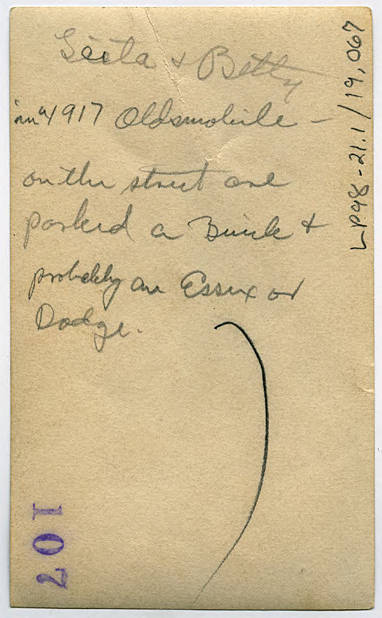 Geeta & Betty
in a 1917 Oldsmobile -
on the street are
parked a Buick &
probably an Essex or
Dodge.
LP98-21.1/19,067
107